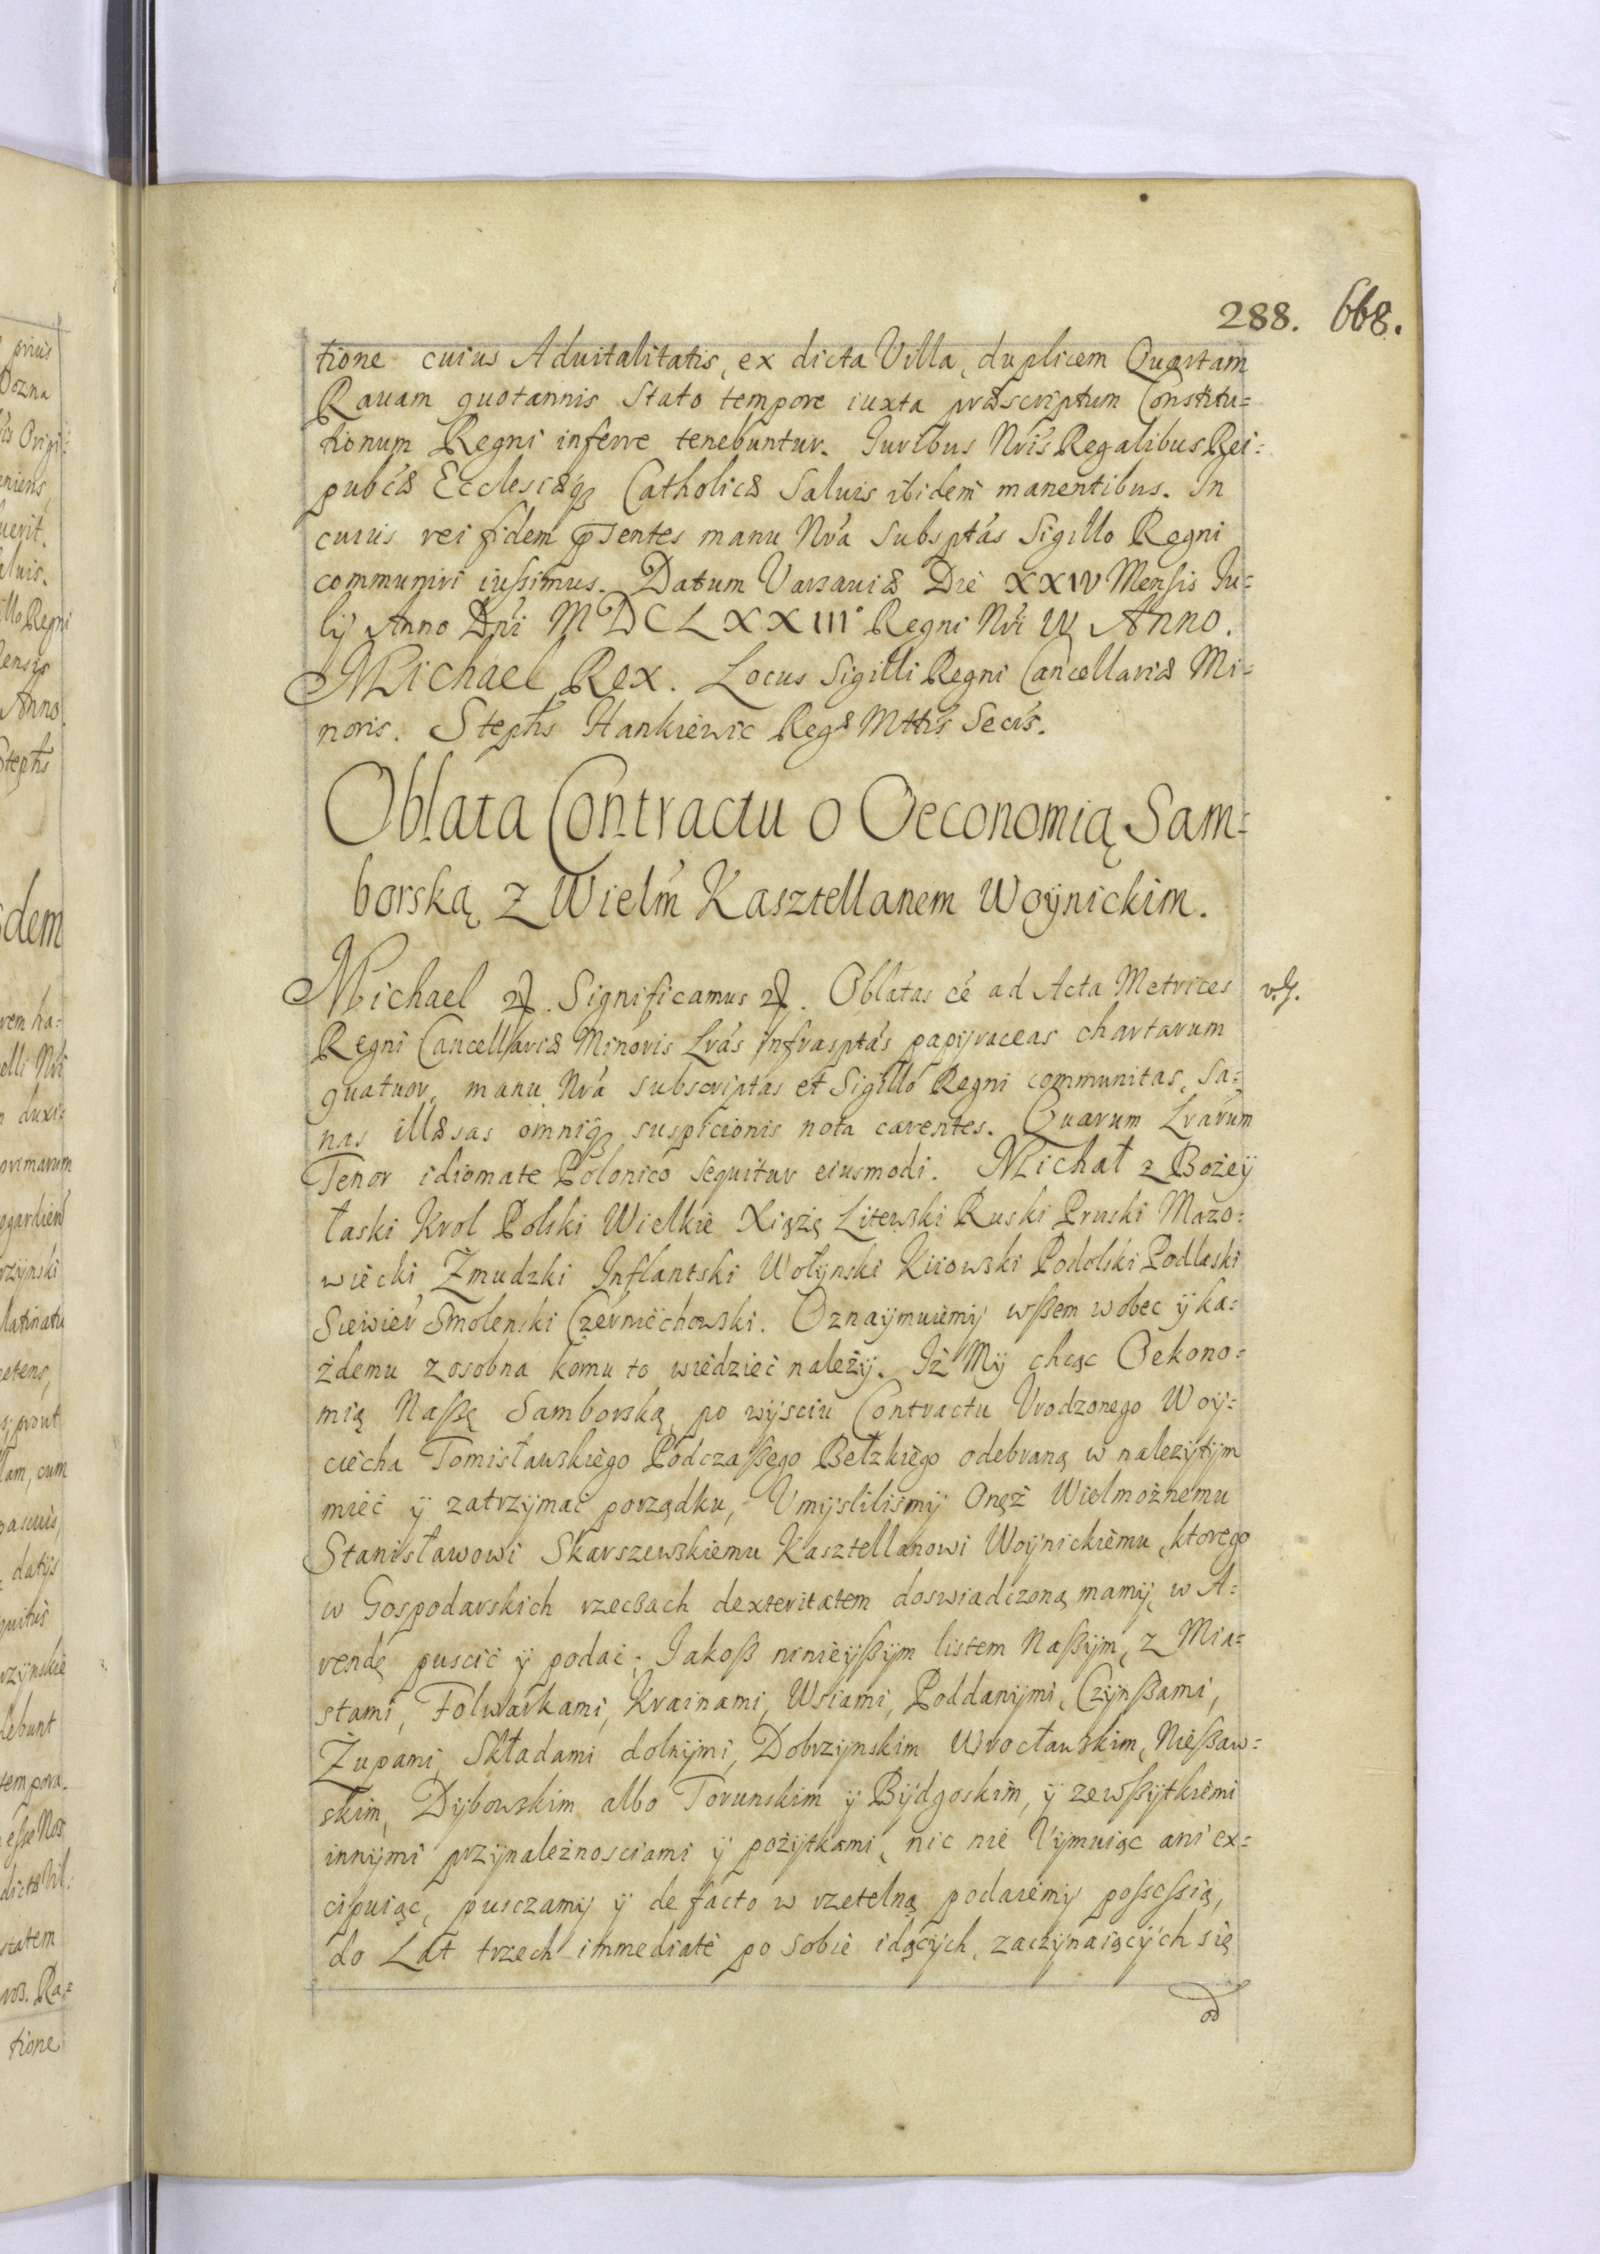 288. 668.
tione cuius Aduitalitatis, ex dicta Villa, duplicem Quartam
Rauam quotannis stato tempore iuxta præscriptum Constitu=
tionum Regni inferre tenebuntur. Iuribus Nris Regalibus Rei=
pubcæ Ecclesiæq Catholicæ saluis ibidem manentibus. In
cuius rei fidem pñtes manu Nra subsptas Sigillo Regni
communiri iußimus. Datum Varsauiæ Die XXIV Mensis Iu=
lij Anno Dni MDCLXXIII° Regni Nri IV Anno.
Michael Rex. Locus Sigilli Regni Cancellariæ Mi=
noris. Stephs Hankiewic Regæ Mttis Secrs.
Oblata Contractu o Oeconomią Sam=
borską z Wielm Kasztellanem Woÿnickim.
Michael . Significamus . Oblatas ee ad Acta Metrices
Regni Cancellariæ Minoris Lras infrasptas papijraceas chartarum
quatuor, manu Nra subscriptas et Sigillo Regni communitas, sa=
nas illæsas omniq suspicionis nota carentes. Quarum Lrarum
Tenor idiomate Polonico sequitur eiusmodi. Michał z Bożeÿ
łaski Krol Polski Wielkie Xiążę Litewski Ruski Pruski Mazo=
wiecki Zmudzki Inflantski Wołÿnski Kiiowski Podolski Podlaski
Siewier Smolenski Czerniechowski. Oznaÿmuiemÿ wßem wobec ÿ ka=
żdemu zosobna komu to wiedzieć należÿ. Iż Mÿ chcąc Oekono=
mią Naßę Samborską po wÿsciu Contractu Vrodzonego Woÿ=
ciecha Tomisławskiego Podczaßego Bełzkiego odebraną w należÿtÿm
mieć ÿ zatrzÿmać porządku, Vmÿslilismÿ Onęż Wielmożnemu
Stanisławowi Skarszewskiemu Kasztellanowi Woÿnickiemu, ktorego
w Gospodarskich rzeczach dexteritatem doswiadczoną mamÿ, w A=
rendę puscić ÿ podać; Iakoß ninieÿßÿm listem Naßÿm, z Mia=
stami, Folwarkami, Krainami, Wsiami, Poddanÿmi, Czÿnßami,
Żupami, Składami dolnÿmi, Dobrzÿnskim Wrocławskim, Nießaw=
skim, Dÿbowskim albo Torunskim ÿ Bÿdgoskim, ÿ zewßÿtkiemi
innÿmi przÿnależnosciami ÿ pożÿtkami, nic nie Vÿmuiąc ani ex=
cipuiąc, pusczamÿ ÿ de facto w rzetelną podaiemÿ poßeßią,
do Lat trzech immediatè po sobie idącÿch, zaczÿnaiącÿch się
od